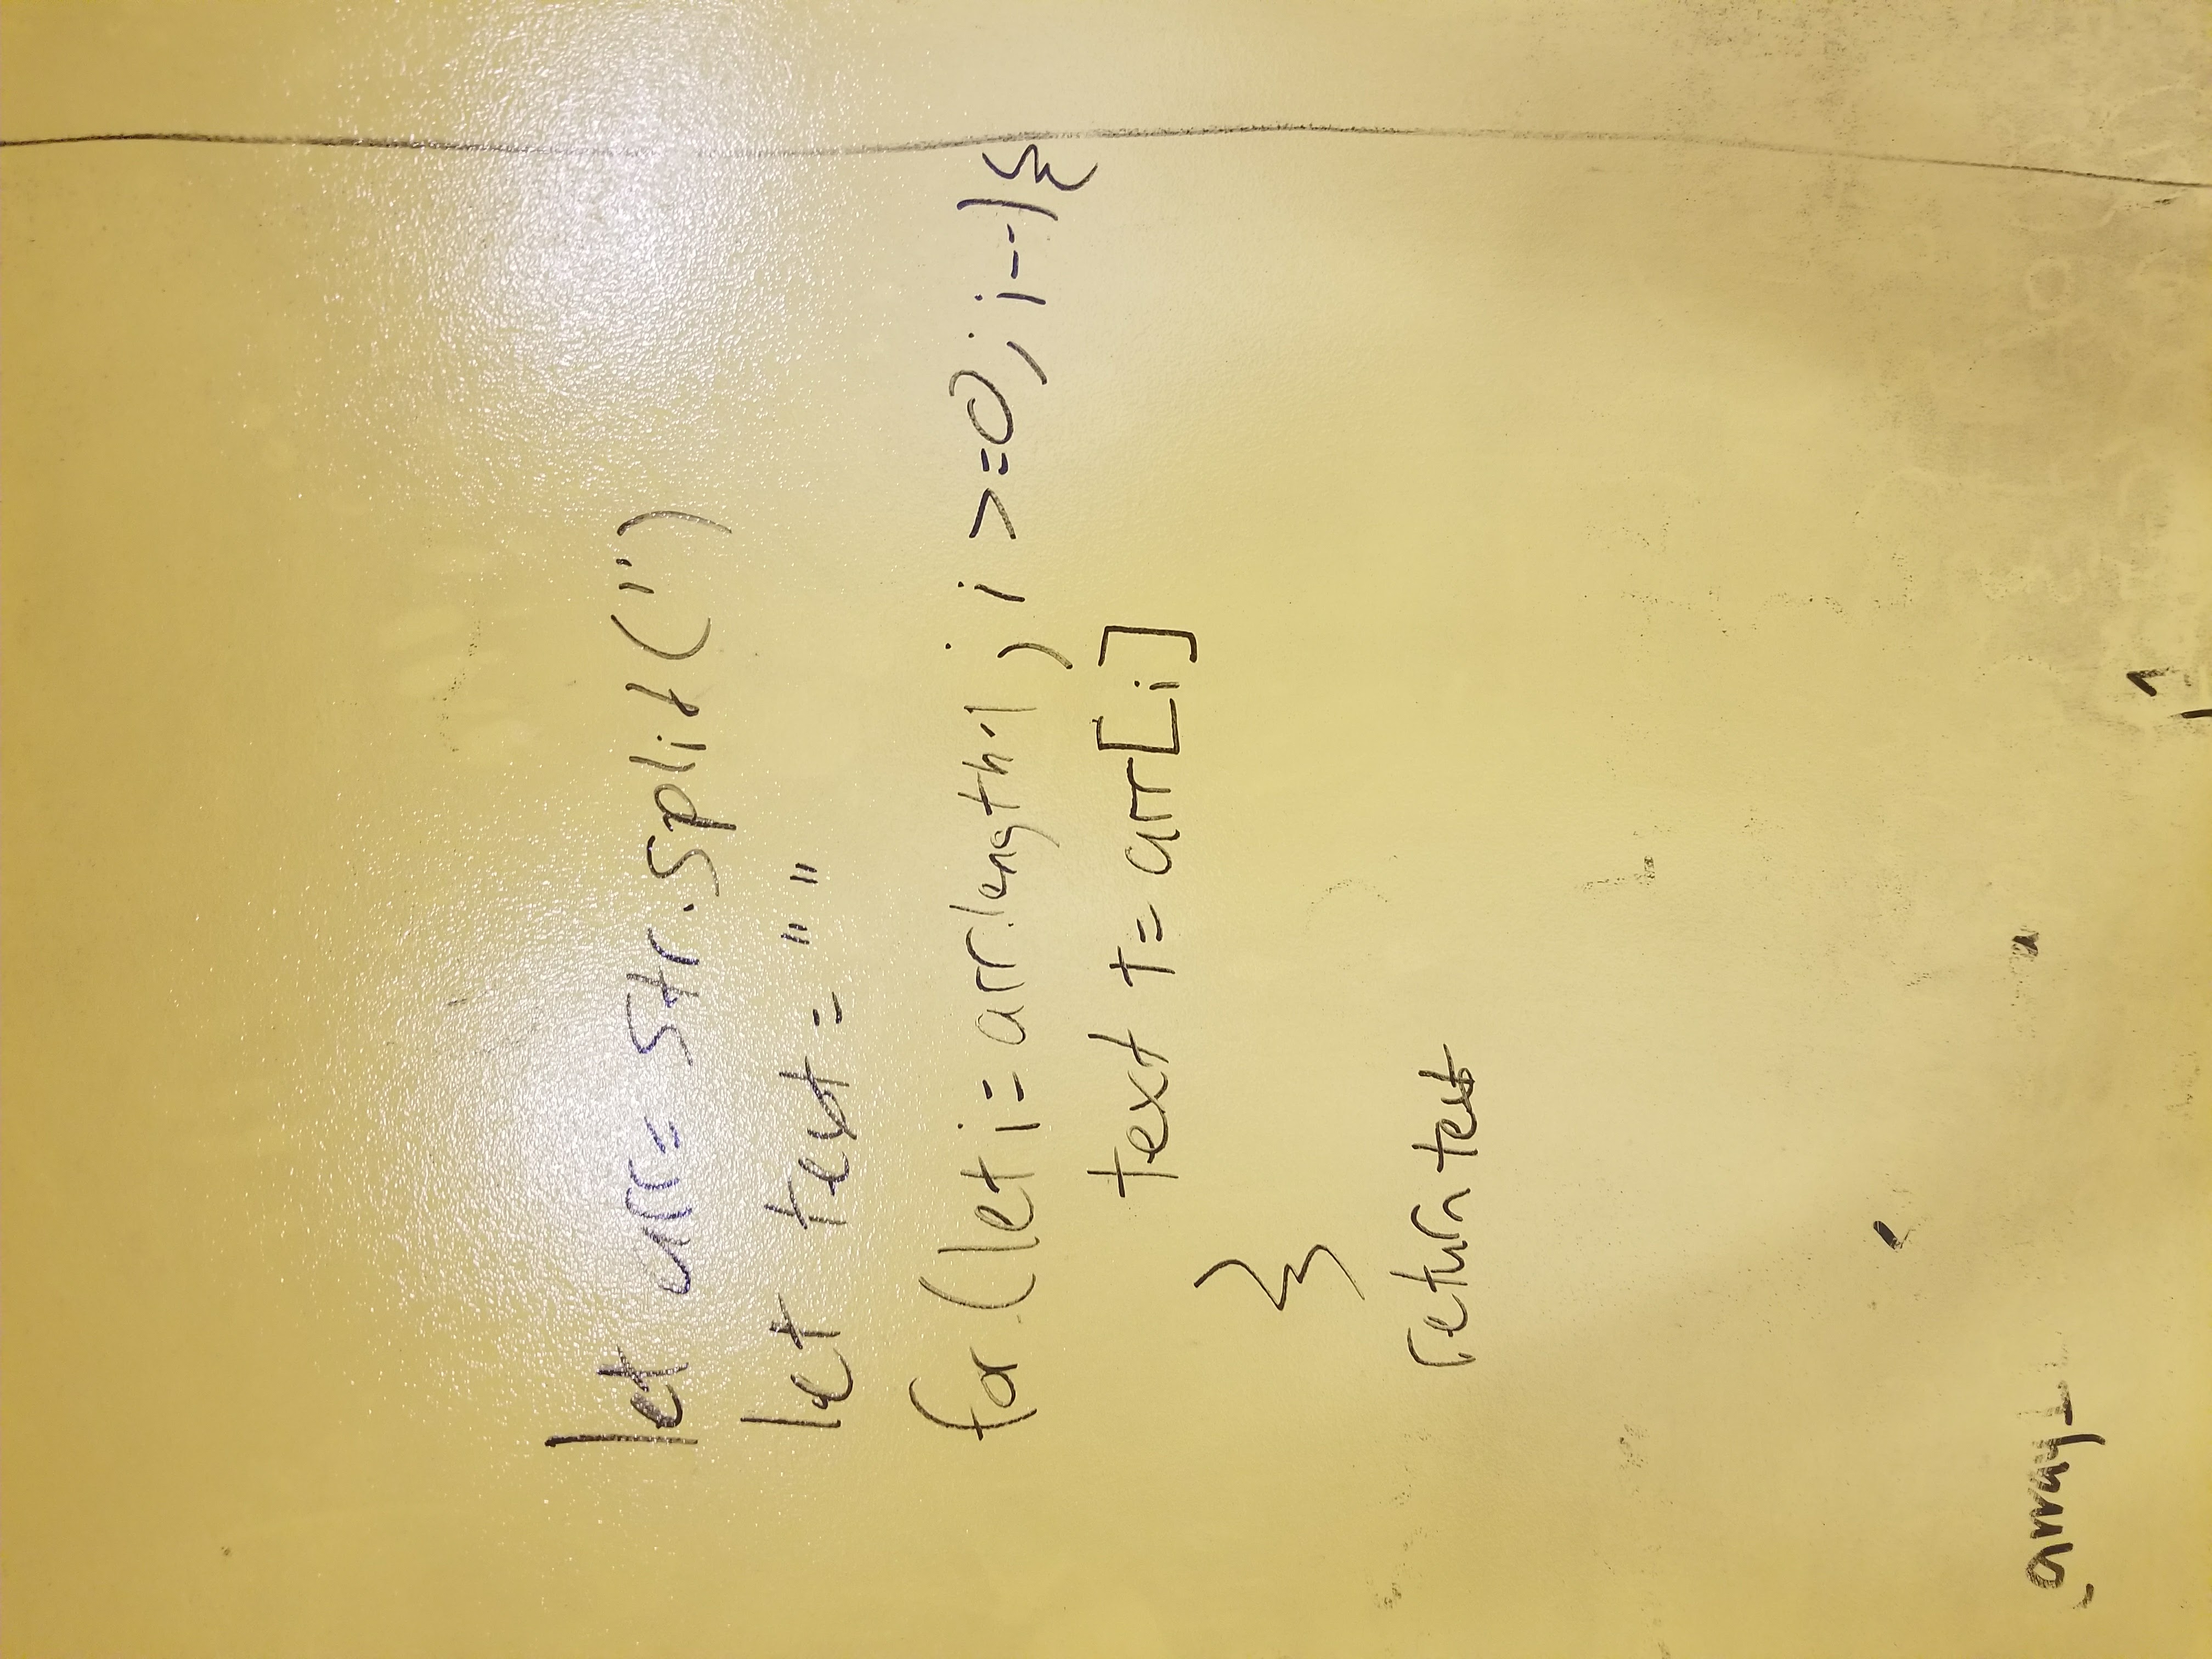 let arr= str.split('')
let text = " "
for (let i = arr.length-1 ; i >=0 ; i--){
text += arr[i]
}
return text
array